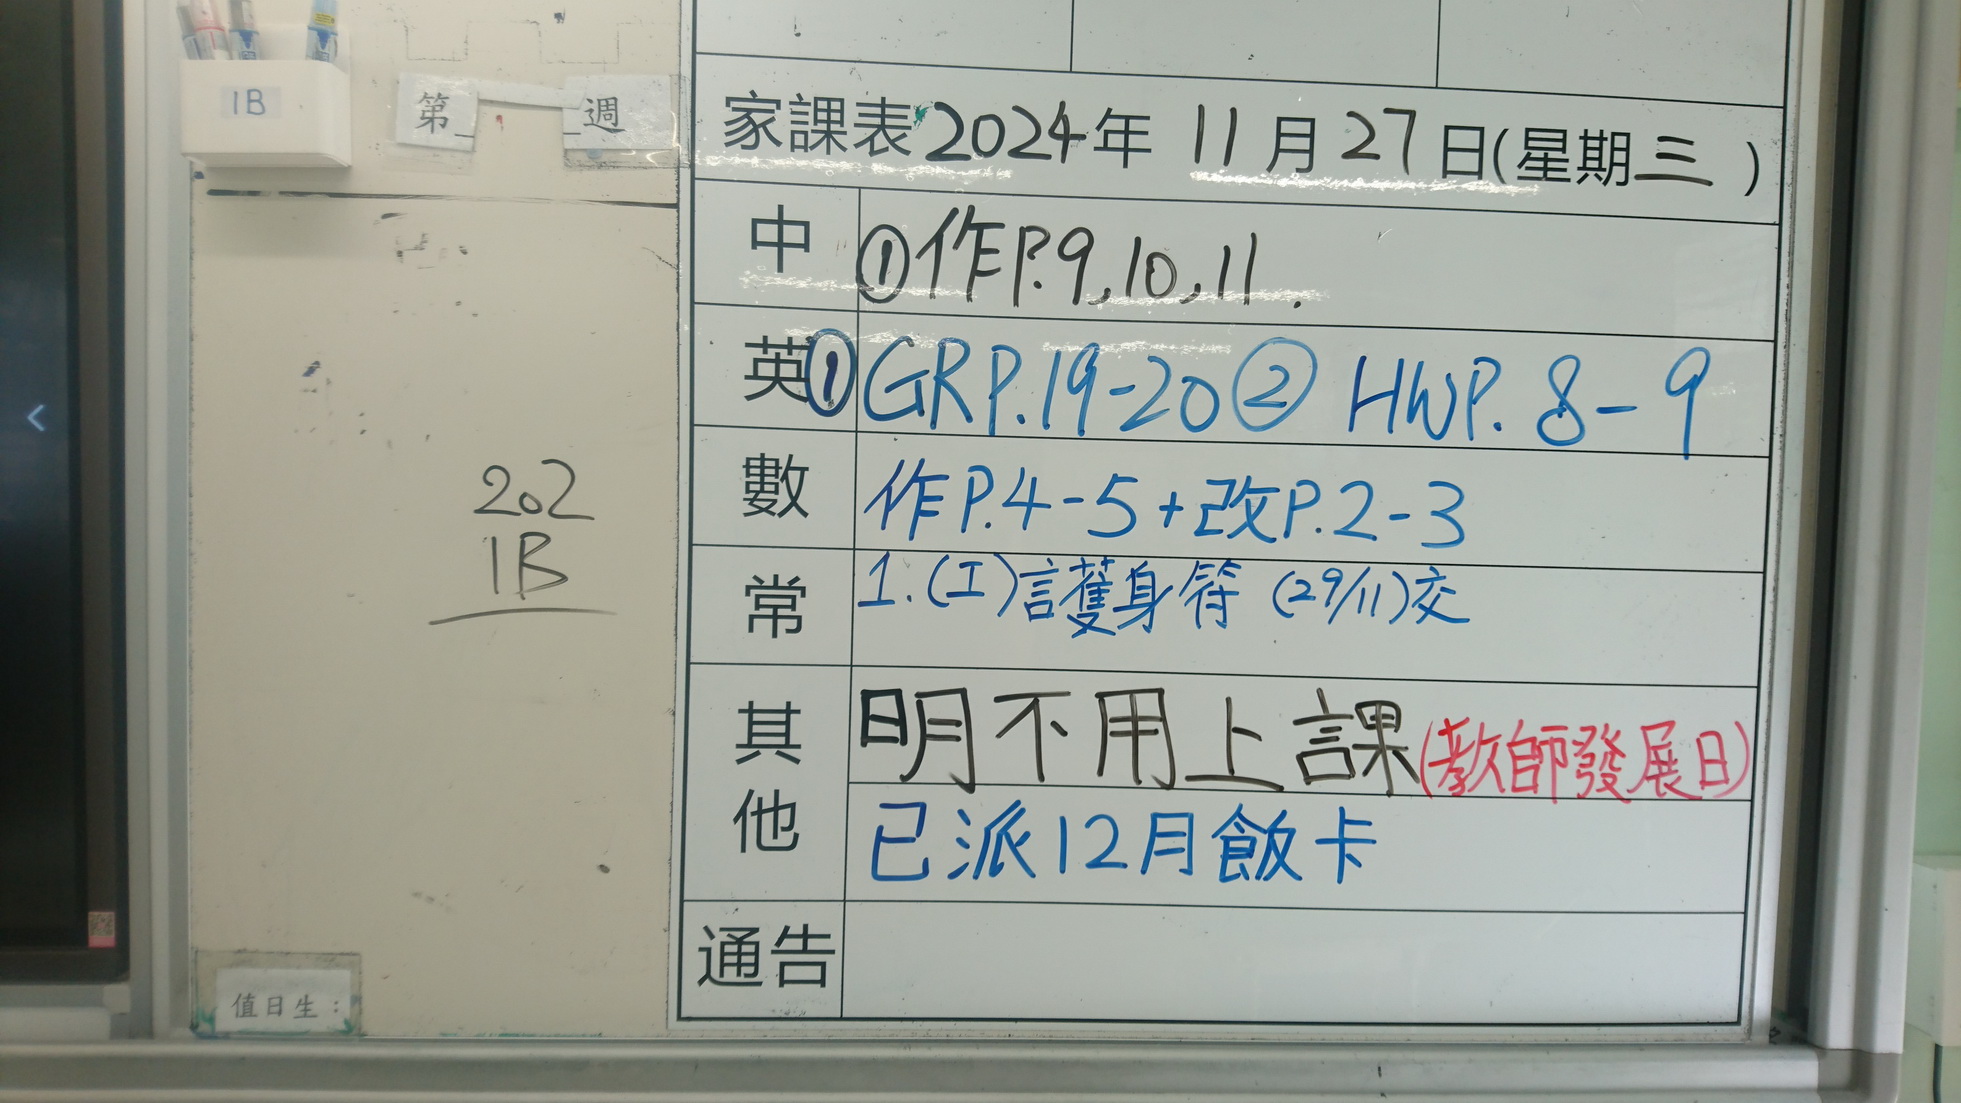 1B
第__週
家課表2024年 11月27日(星期三)
中 ①作P.9,10,11.
英 ①GRP.19-20② HWP. 8-9
數 作P.4-5+改P.2-3
常 1.(工)言護身符 (29/11)交
202
1B
其他 明不用上課(教師發展日)
已派12月飯卡
通告
值日生：